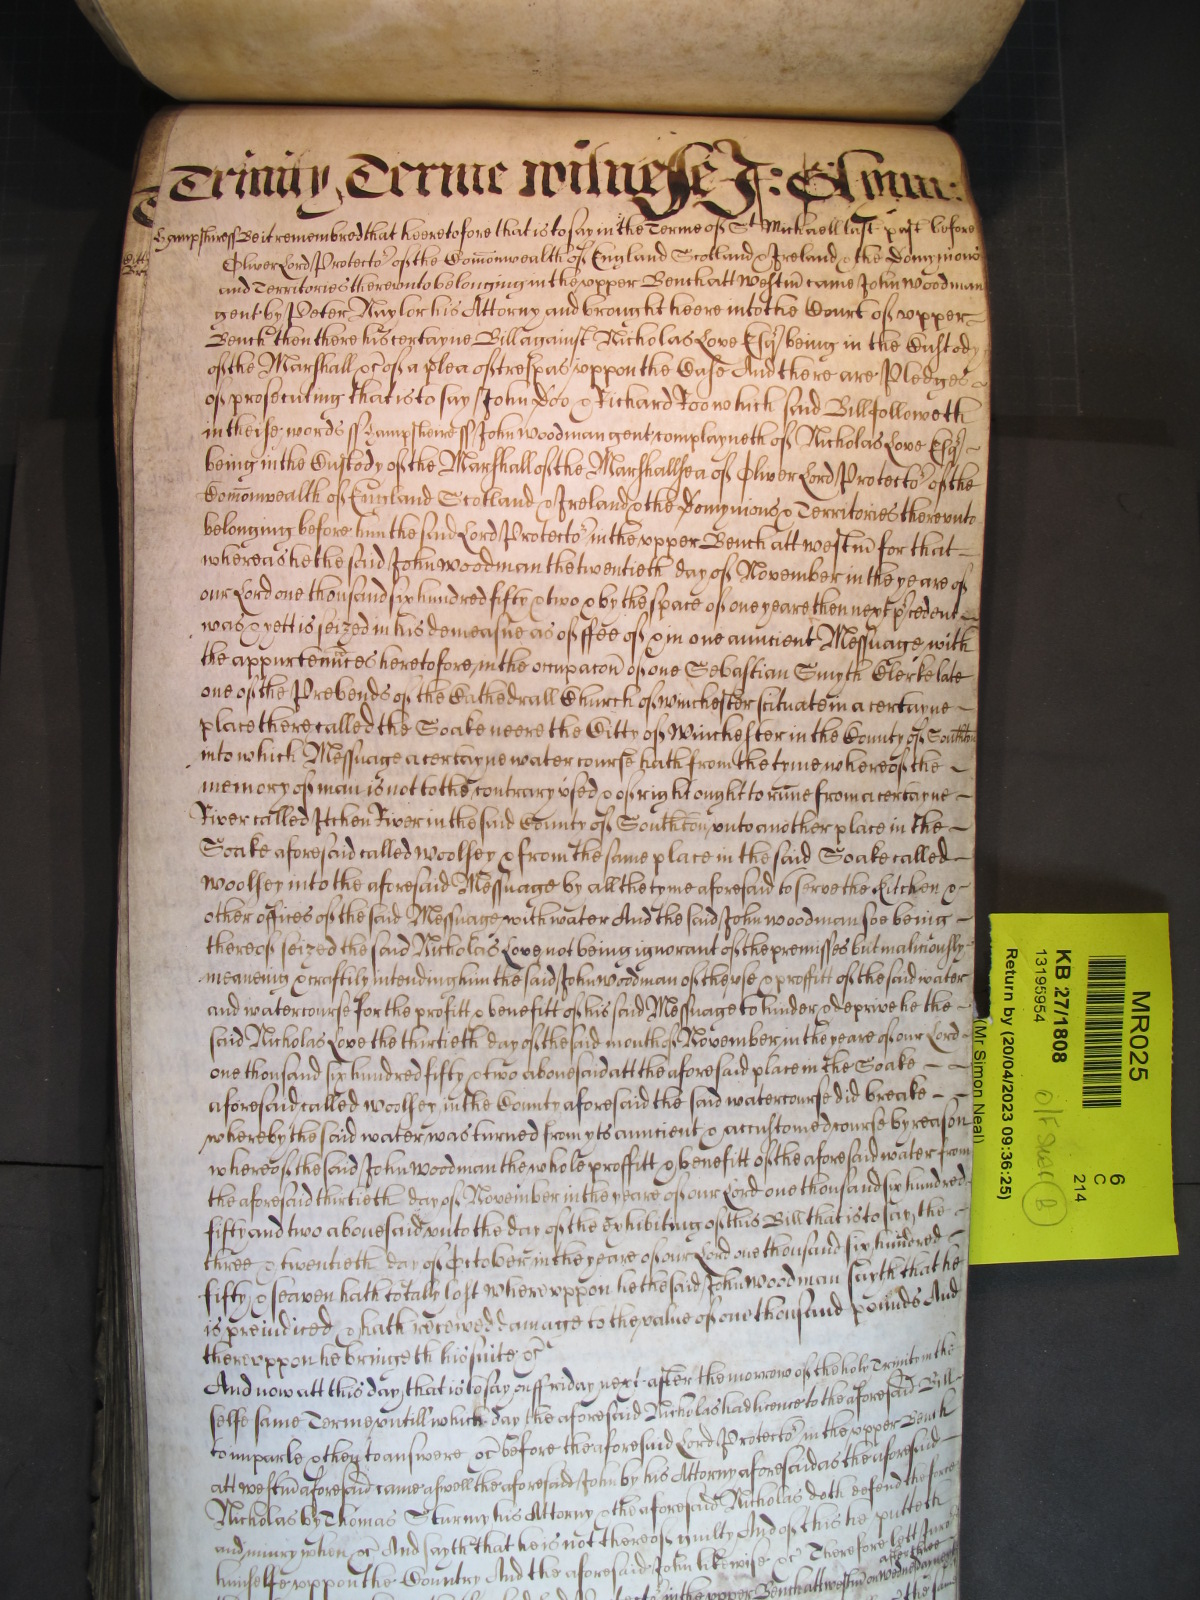 Trinity Terme witnesse J: Glynn:
Hampshire ss Be it remembred that heeretofore that is to say in the Terme of St Michaell last past before
Oliver Lord Protector of the Com̄onwealth of England Scotland & Ireland & the Domynions
and Territories thereunto belonging in the upper Bench att Westm̄ came John Woodman
gent by Peter Naylor his Attorny and brought heere into the Court of upper
Bench then there his certayne Bill against Nicholas Love Esqr being in the Custody
of the Marshall &c of a plea of trespas uppon the Case And there are Pledges
of prosecuting that is to say John Doo & Richard Roo which said Bill followeth
in theise words ss Hampsheire ss John Woodman gent complayneth of Nicholas Love Esqr
being in the Custody of the Marshall of the Marshallsea of Oliver Lord Protector of the
Com̄onwealth of England Scotland & Ireland & the Domynions & Territories thereunto
belonging before him the said Lord Protector in the upper Bench att Westm̄ for that
whereas he the said John Woodman the twentieth day of November in the yeare of
our Lord one thousand six hundred fifty & two & by the space of one yeare then next p̱cedent
was & yett is seized in his demeasne as of ffee of & in one auncient Messuage with
the appurtenn̄ces heretofore in the occupac̄on of one Sebastian Smyth Clerke late
one of the Prebends of the Cathedrall Church of Winchester scituate in a certayne
place there called the Soake neere the Citty of Winchester in the County of Southton
into which Messuage a certayne water course hath from the tyme whereof the
memory of man is not to the contrary used & of right ought to run̄e from a certayne
River called Itchen River in the said County of Southton unto another place in the
Soake aforesaid called Woolsey & from the same place in the said Soake called
Woolsey into the aforesaid Messuage by all the tyme aforesaid to serve the Kitchen &
other offices of the said Messuage with water And the said John Woodman soe being
thereof seized the said Nicholas Love not being ignorant of the premisses but maliciously
meaneing & craftily intending him the said John Woodman of the use & proffitt of the said water
and watercourse for the profitt & benefitt of his said Messuage to hinder & deprive he the
said Nicholas Love the thirtieth day of the said month of November in the yeare of our Lord
one thousand six hundred fifty & two abovesaid att the aforesaid place in the Soake
aforesaid called Woolsey in the County aforesaid the said watercourse did breake
whereby the said water was turned from yts auncient & accustomed course by reason
whereof the said John Woodman the whole proffitt & benefitt of the aforesaid water from
the aforesaid thirtieth day of November in the yeare of our Lord one thousand six hundred
fifty and two abovesaid unto the day of the exhibiting of this Bill that is to say the
three & twentieth day of October in the yeare of our Lord one thousand six hundred
fifty & seaven hath totally lost whereuppon he the said John Woodman sayth that he
is preiudiced & hath received damage to the value of one thousand pounds And
thereuppon he bringeth his suite &c
And now att this day that is to say on ffriday next after the morrow of the holy Trinity in the
selfe same Terme untill which day the aforesaid Nicholas had licence to the aforesaid Bill
to imparle & then to answere &c before the aforesaid Lord Protector in the upper Bench
att Westm̄ aforesaid came aswell the aforesaid John by his Attorny aforesaid as the aforesaid
Nicholas by Thomas Sturmy his Attorny & the aforesaid Nicholas doth defend the force
and iniury when &c And sayth that he is not thereof guilty And of this he putteth
himselfe uppon the Country And the aforesaid John likewise &c Therefore lett
in the upper Bench att Westm̄ on Wednesday next
after three
the same
MR025
6
C
214
KB 27/1808
13195954
Return by (20/04/2023 09:36:25)
(Mr Simon Neal)